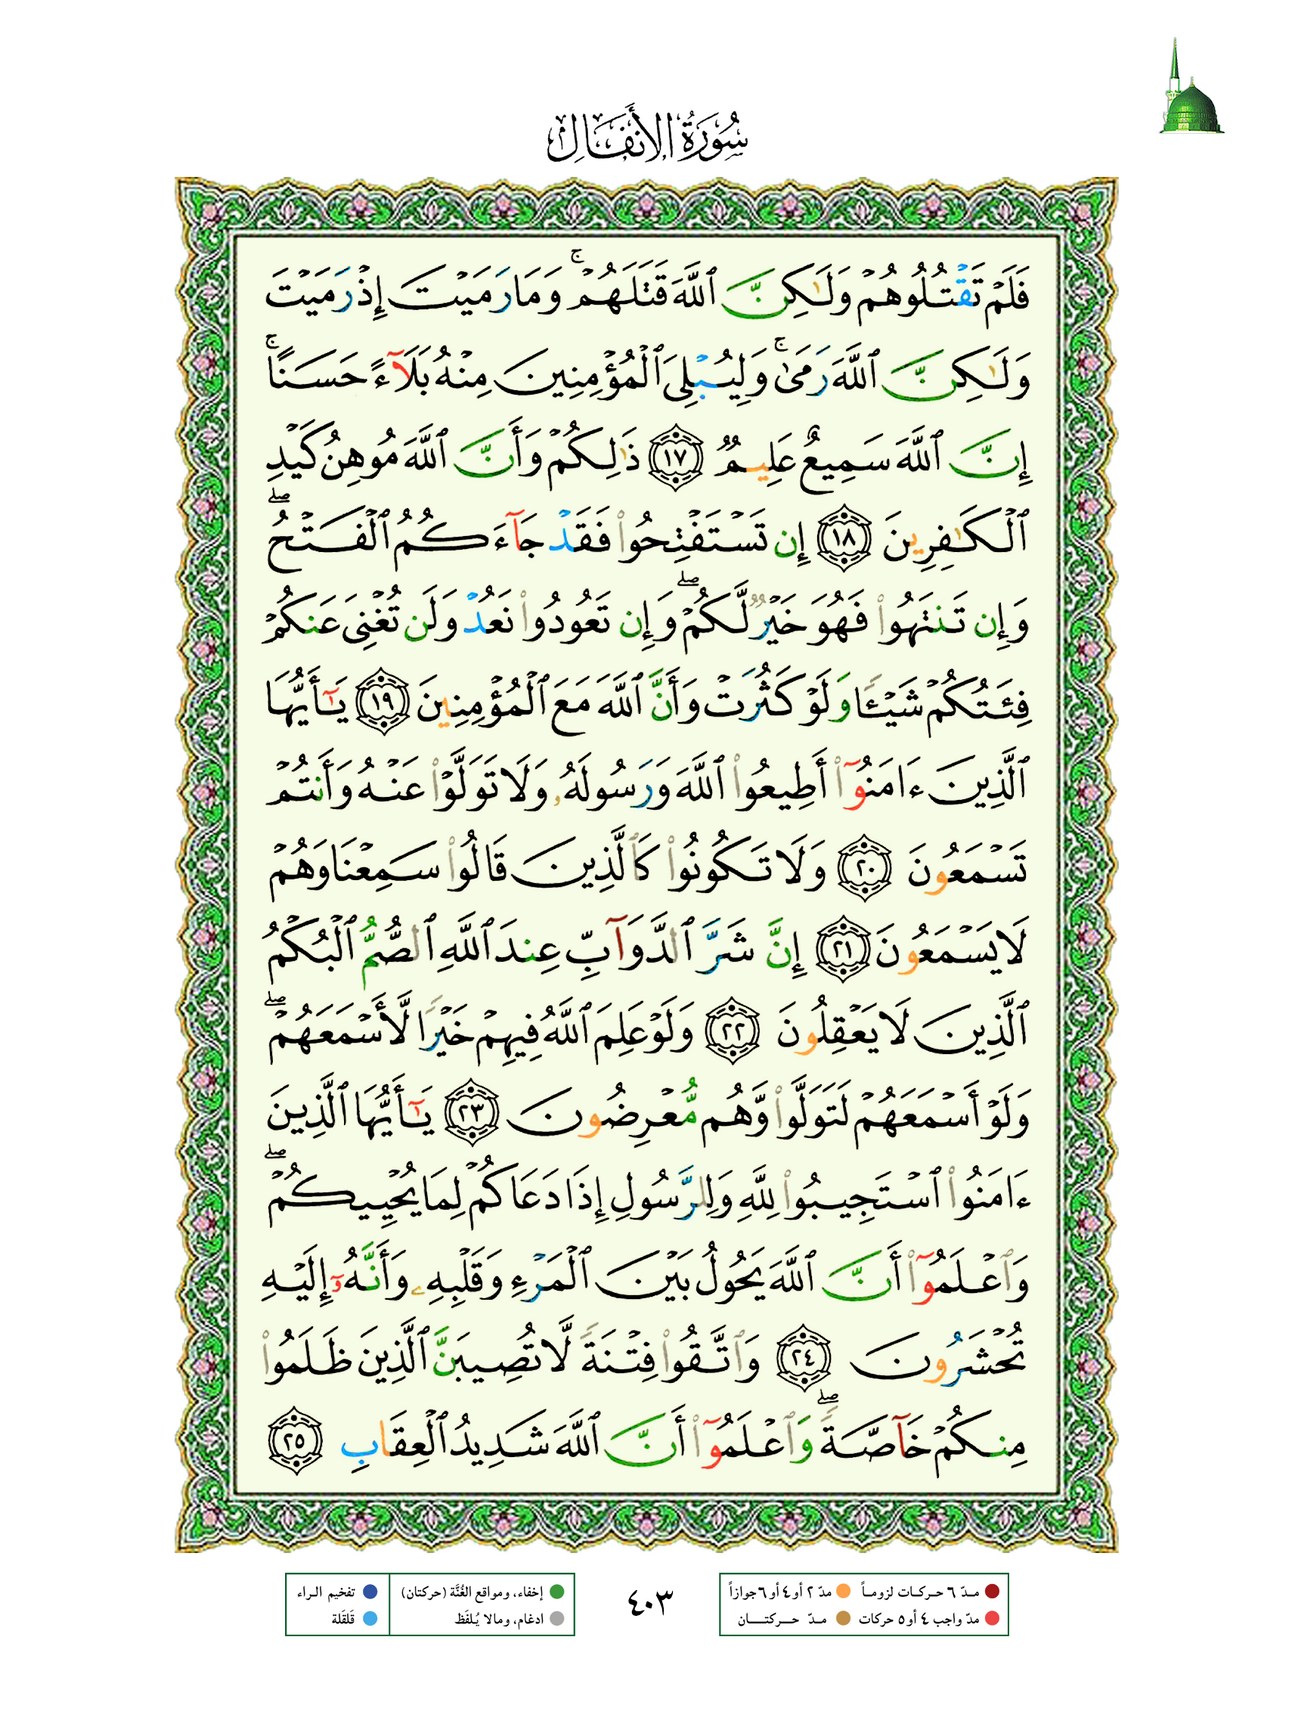 سُورَةُ الأَنفَالِ
فَلَمْ تَقْتُلُوهُمْ وَلَٰكِنَّ ٱللَّهَ قَتَلَهُمْ ۚ وَمَا رَمَيْتَ إِذْ رَمَيْتَ
وَلَٰكِنَّ ٱللَّهَ رَمَىٰ ۚ وَلِيُبْلِىَ ٱلْمُؤْمِنِينَ مِنْهُ بَلَآءً حَسَنًا ۚ
إِنَّ ٱللَّهَ سَمِيعٌ عَلِيمٌ ١٧ ذَٰلِكُمْ وَأَنَّ ٱللَّهَ مُوهِنُ كَيْدِ
ٱلْكَٰفِرِينَ ١٨ إِن تَسْتَفْتِحُوا۟ فَقَدْ جَآءَكُمُ ٱلْفَتْحُ ۖ
وَإِن تَنتَهُوا۟ فَهُوَ خَيْرٌ لَّكُمْ ۖ وَإِن تَعُودُوا۟ نَعُدْ وَلَن تُغْنِىَ عَنكُمْ
فِئَتُكُمْ شَيْـًٔا وَلَوْ كَثُرَتْ وَأَنَّ ٱللَّهَ مَعَ ٱلْمُؤْمِنِينَ ١٩ يَٰٓأَيُّهَا
ٱلَّذِينَ ءَامَنُوٓا۟ أَطِيعُوا۟ ٱللَّهَ وَرَسُولَهُۥ وَلَا تَوَلَّوْا۟ عَنْهُ وَأَنتُمْ
تَسْمَعُونَ ٢٠ وَلَا تَكُونُوا۟ كَٱلَّذِينَ قَالُوا۟ سَمِعْنَا وَهُمْ
لَا يَسْمَعُونَ ٢١ إِنَّ شَرَّ ٱلدَّوَآبِّ عِندَ ٱللَّهِ ٱلصُّمُّ ٱلْبُكْمُ
ٱلَّذِينَ لَا يَعْقِلُونَ ٢٢ وَلَوْ عَلِمَ ٱللَّهُ فِيهِمْ خَيْرًا لَّأَسْمَعَهُمْ ۖ
وَلَوْ أَسْمَعَهُمْ لَتَوَلَّوا۟ وَّهُم مُّعْرِضُونَ ٢٣ يَٰٓأَيُّهَا ٱلَّذِينَ
ءَامَنُوا۟ ٱسْتَجِيبُوا۟ لِلَّهِ وَلِلرَّسُولِ إِذَا دَعَاكُمْ لِمَا يُحْيِيكُمْ ۖ
وَٱعْلَمُوٓا۟ أَنَّ ٱللَّهَ يَحُولُ بَيْنَ ٱلْمَرْءِ وَقَلْبِهِۦ وَأَنَّهُۥٓ إِلَيْهِ
تُحْشَرُونَ ٢٤ وَٱتَّقُوا۟ فِتْنَةً لَّا تُصِيبَنَّ ٱلَّذِينَ ظَلَمُوا۟
مِنكُمْ خَآصَّةً ۖ وَٱعْلَمُوٓا۟ أَنَّ ٱللَّهَ شَدِيدُ ٱلْعِقَابِ ٢٥
مـدّ ٦ حـركـات لزومـاً مدّ ٢ أو ٤ أو ٦ جوازاً
مدّ واجب ٤ أو ٥ حركات مـدّ حـركتـان
٤٠٣
إخفاء، ومواقع الغُنَّة (حركتان) تفخيم الراء
ادغام، ومالا يُـلفَظ قلقلة